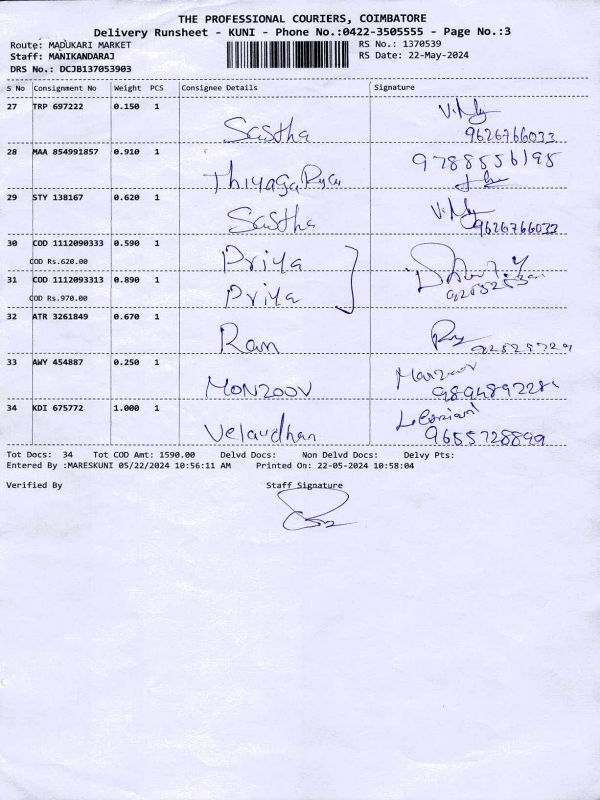 THE PROFESSIONAL COURIERS, COIMBATORE
Delivery Runsheet - KUNI - Phone No.:0422-3505555 - Page No.:3
Route: MADUKARI MARKET RS No.: 1370539
Staff: MANIKANDARAJ RS Date: 22-May-2024
DRS No.: DCJB137053903
S No Consignment No Weight PCS Consignee Details Signature
27 TRP 697222 0.150 1
Sastha 9626766033
28 MAA 854991857 0.910 1 9788556198
29 STY 138167 0.620 1
Sastha 9626766033
30 COD 1112090333 0.590 1 Priya
COD Rs.620.00
31 COD 1112093313 0.890 1 Priya
COD Rs.970.00
32 ATR 3261849 0.670 1
Ram
33 AWY 454887 0.250 1 Manzoor
MONZOOV
34 KDI 675772 1.000 1
Velaudhan 9655728899
Tot Docs: 34 Tot COD Amt: 1590.00 Delvd Docs: Non Delvd Docs: Delvy Pts:
Entered By :MARESKUNI 05/22/2024 10:56:11 AM Printed On: 22-05-2024 10:58:04
Verified By Staff Signature